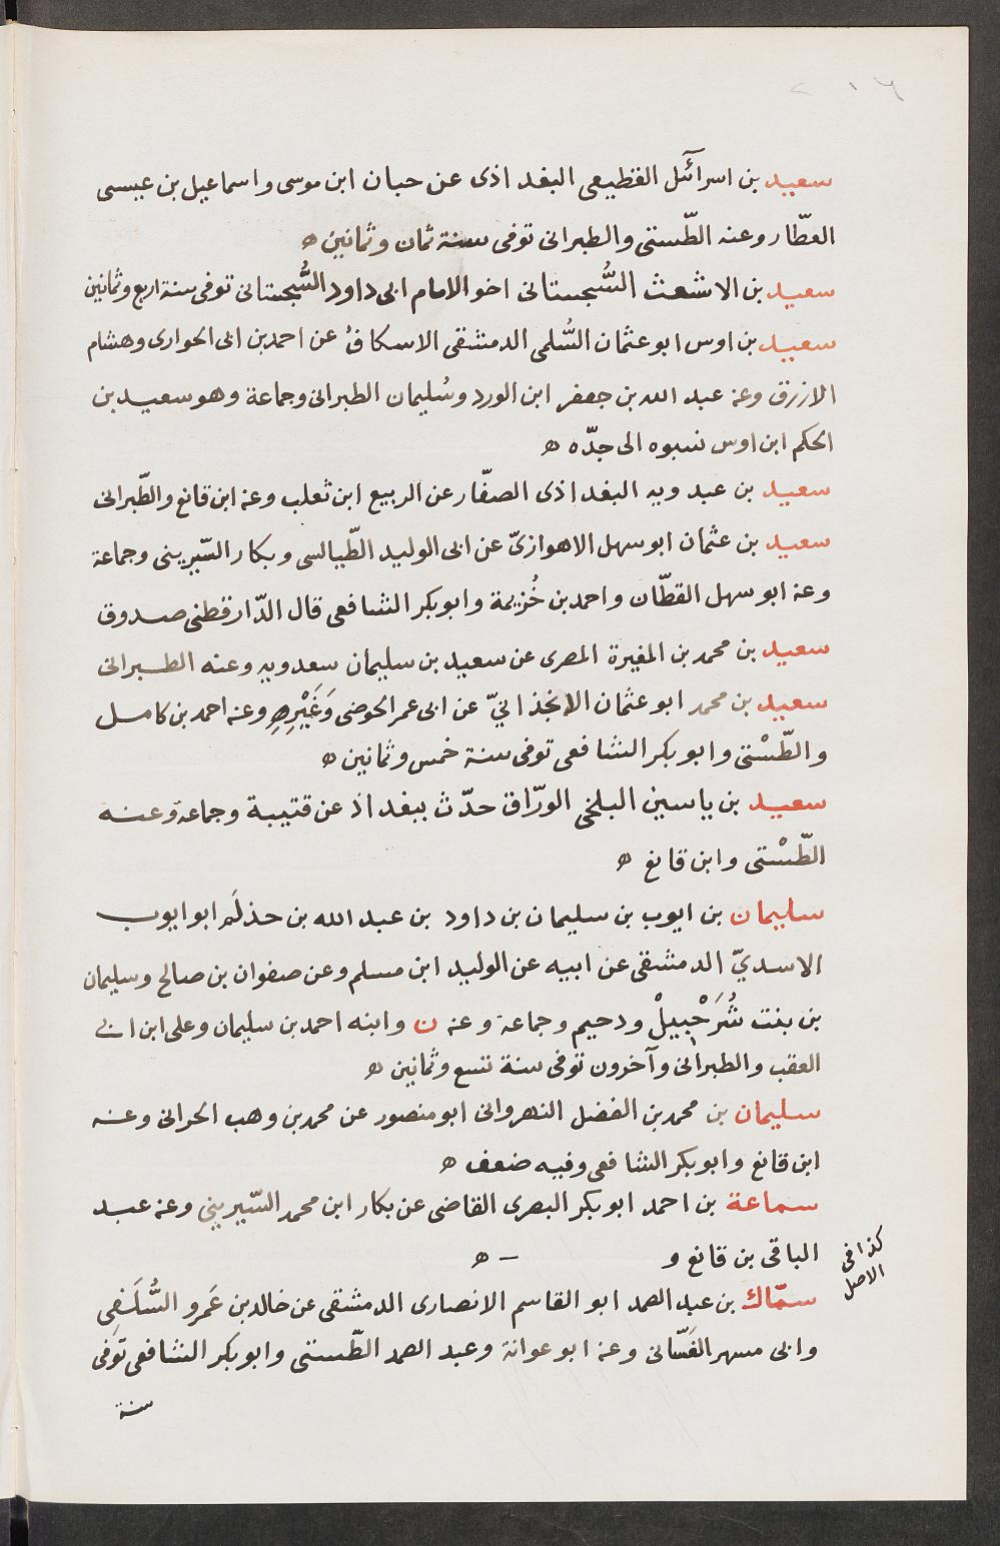 سعيد بن اسرآئل القطيعى البغداذى عن حبان ابن موسى واسماعيل بن عيسى
العطّار وعنه الطّستى والطبرانى توفى سنة ثمان وثمانين ه
سعيد بن الاشعث السُّجستانى اخو الامام ابى داود السُّجستانى توفى سنة اربع وثمانين
سعيد بن اوس ابو عثمان السُّلمى الدمشقى الاسكافُ عن احمد بن ابى الحوارى وهشام
الازرق وعنه عبد الله بن جعفر ابن الورد وسُليمان الطبرانى وجماعة وهو سعيد بن
الحكم ابن اوس نسبوه الى جدّه ه
سعيد بن عبدويه البغداذى الصفّار عن الربيع ابن ثعلب وعنه ابن قانع والطّبرانى
سعيد بن عثمان ابو سهل الاهوازىّ عن ابى الوليد الطّيالسى وبكار السّيرينى وجماعة
وعنه ابو سهل القطّان واحمد بن خُزيمة وابو بكر الشافعى قال الدّارقطنى صدوق
سعيد بن محمد بن المغيرة المصرى عن سعيد بن سليمان سعدويه وعنه الطبرانى
سعيد بن محمد ابو عثمان الانجذانيّ عن ابى عمر الحوضى وَغَيْرِهِ وعنه احمد بن كامل
والطّسْتى وابو بكر الشافعى توفى سنة خمس وثمانين ه
سعيد بن ياسين البلخى الورّاق حدّث ببغداذ عن قتيبة وجماعة وعنه
الطّسْتى وابن قانع ه
سليمان بن ايوب بن سليمان بن داود بن عبد الله بن حذلَم ابو ايوب
الاسديّ الدمشقى عن ابيه عن الوليد ابن مسلم وعن صفوان بن صالح وسليمان
بن بنت شُرَحْبيلْ ودحيم وجماعة وعنه ن وابنه احمد بن سليمان وعلى ابن ابى
العقب والطبرانى وآخرون توفى سنة تسع وثمانين ه
سليمان بن محمد بن الفضل النهروانى ابو منصور عن محمد بن وهب الحرانى وعنه
ابن قانع وابو بكر الشافعى وفيه ضعف ه
سماعة بن احمد ابو بكر البصرى القاضى عن بكار ابن محمد السّيريني وعنه عبد
الباقى بن قانع و — ه
كذا فى
الاصل
سمّاك بن عبد الصمد ابو القاسم الانصارى الدمشقى عن خالد بن عَمرو السُّلَفِى
وابى مسهر الغَسّانى وعنه ابو عوانة وعبد الصمد الطّستى وابو بكر الشافعى توفى
سنة